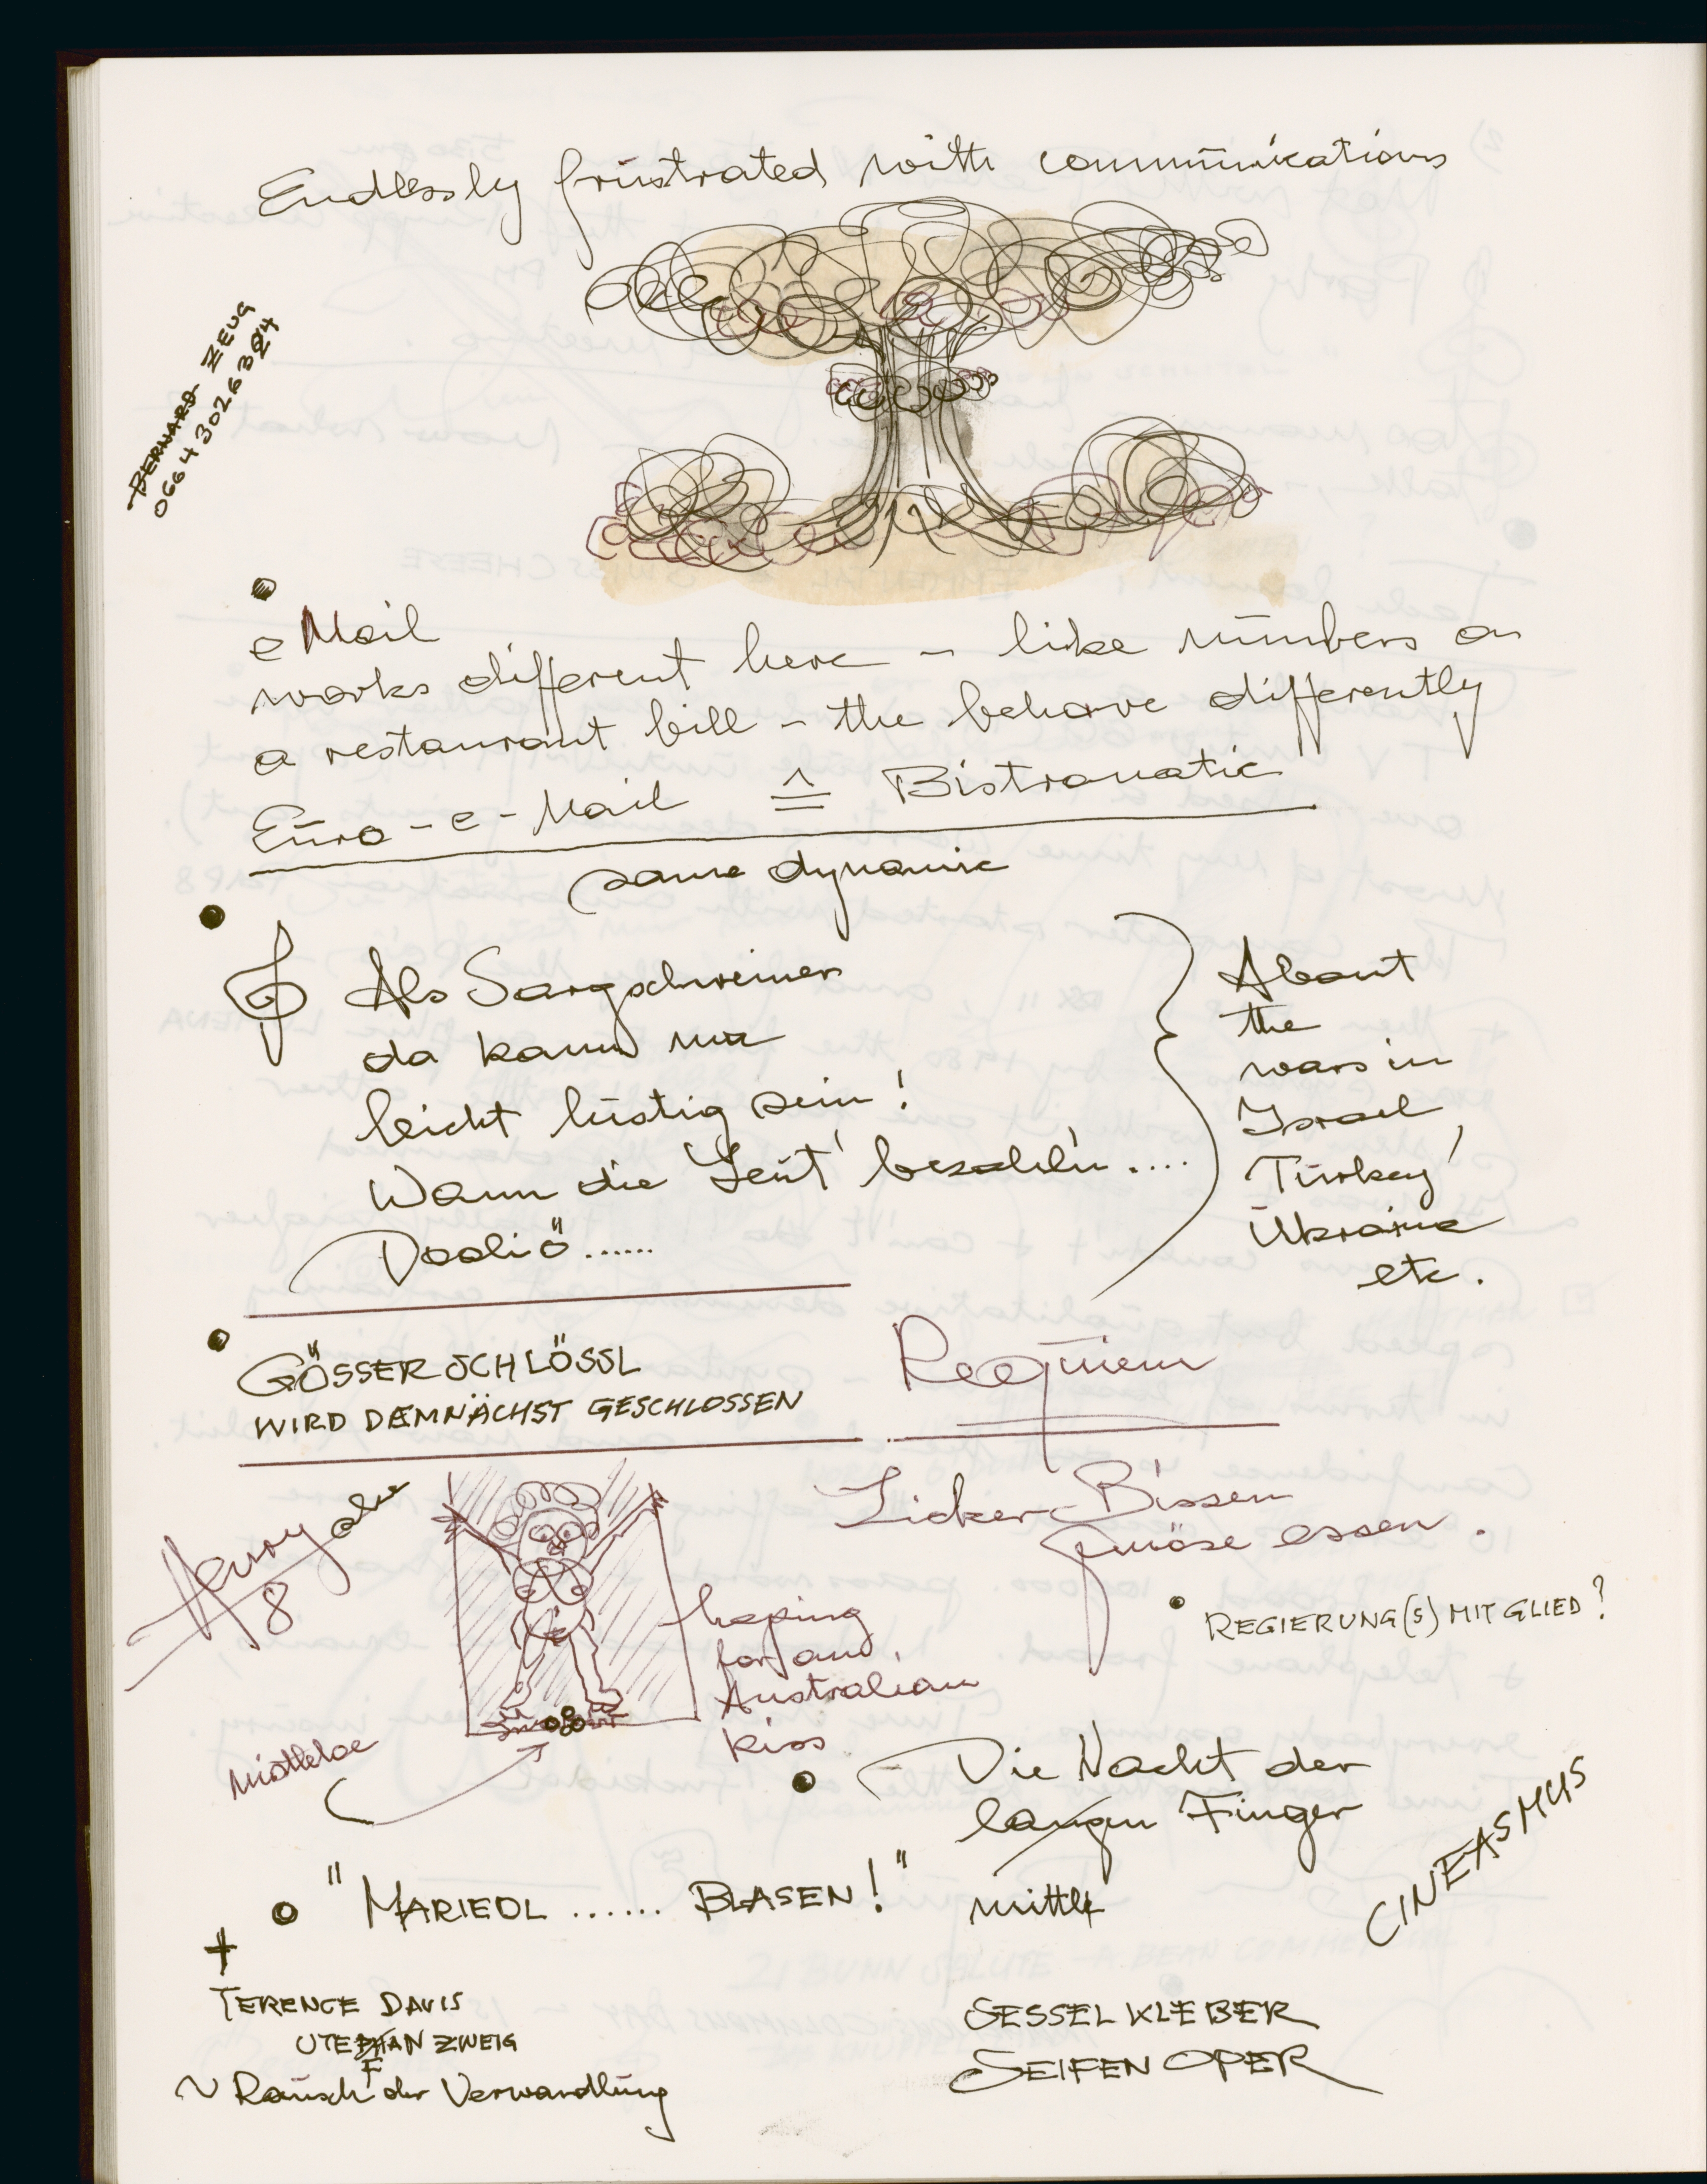 Endlessly frustrated with communications
BERNARD ZEUG
eMail
works different here – like numbers on
a restaurant bill – the behave differently
Euro-e-Mail ≙ Bistromatic
same dynamic
Als Sargschreiner
da kann ma
leicht lustig sein!
Wann die Leut' bezahl'n....
Dooliö......
About
the
wars in
Israel,
Turkey,
Ukraine
etc.
GÖSSER SCHLÖSSL
WIRD DEMNÄCHST GESCHLOSSEN
Requiem
Licker-Bissen
essen.
REGIERUNG(S)MITGLIED?
Henry
8
hoping
for an
Australian
kiss
mistletoe
Die Nacht der
langen Finger
mittle
CINEASMUS
"MARIEDL ...... BLASEN!"
+
TERENCE DAVIS
ZWEIG
~ Rausch der Verwandlung
SESSELKLEBER
SEIFENOPER